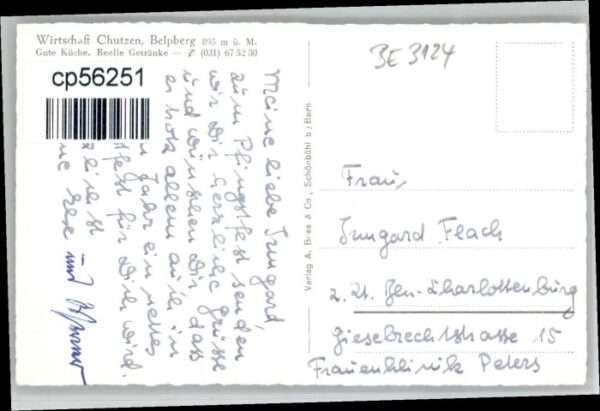 Wirtschaft Chutzen, Belpberg 895 m ü. M.
Gute Küche. Reelle Getränke — (031) 67 52 30
cp56251
BE 3124
Meine liebe Irmgard,
zum Pfingstfest senden
wir Dir herzliche Grüsse
und wünschen Dir dass
es trotz allem auch in
Jahr ein nettes
fest für Dich wird.
und Werner
Verlag A. Bres & Co., Schönbühl b/Bern
Frau,
Irmgard Flach
z. Zt. Bln-Charlottenburg
Giesebrechtstrasse 15
Frauenklinik Peters